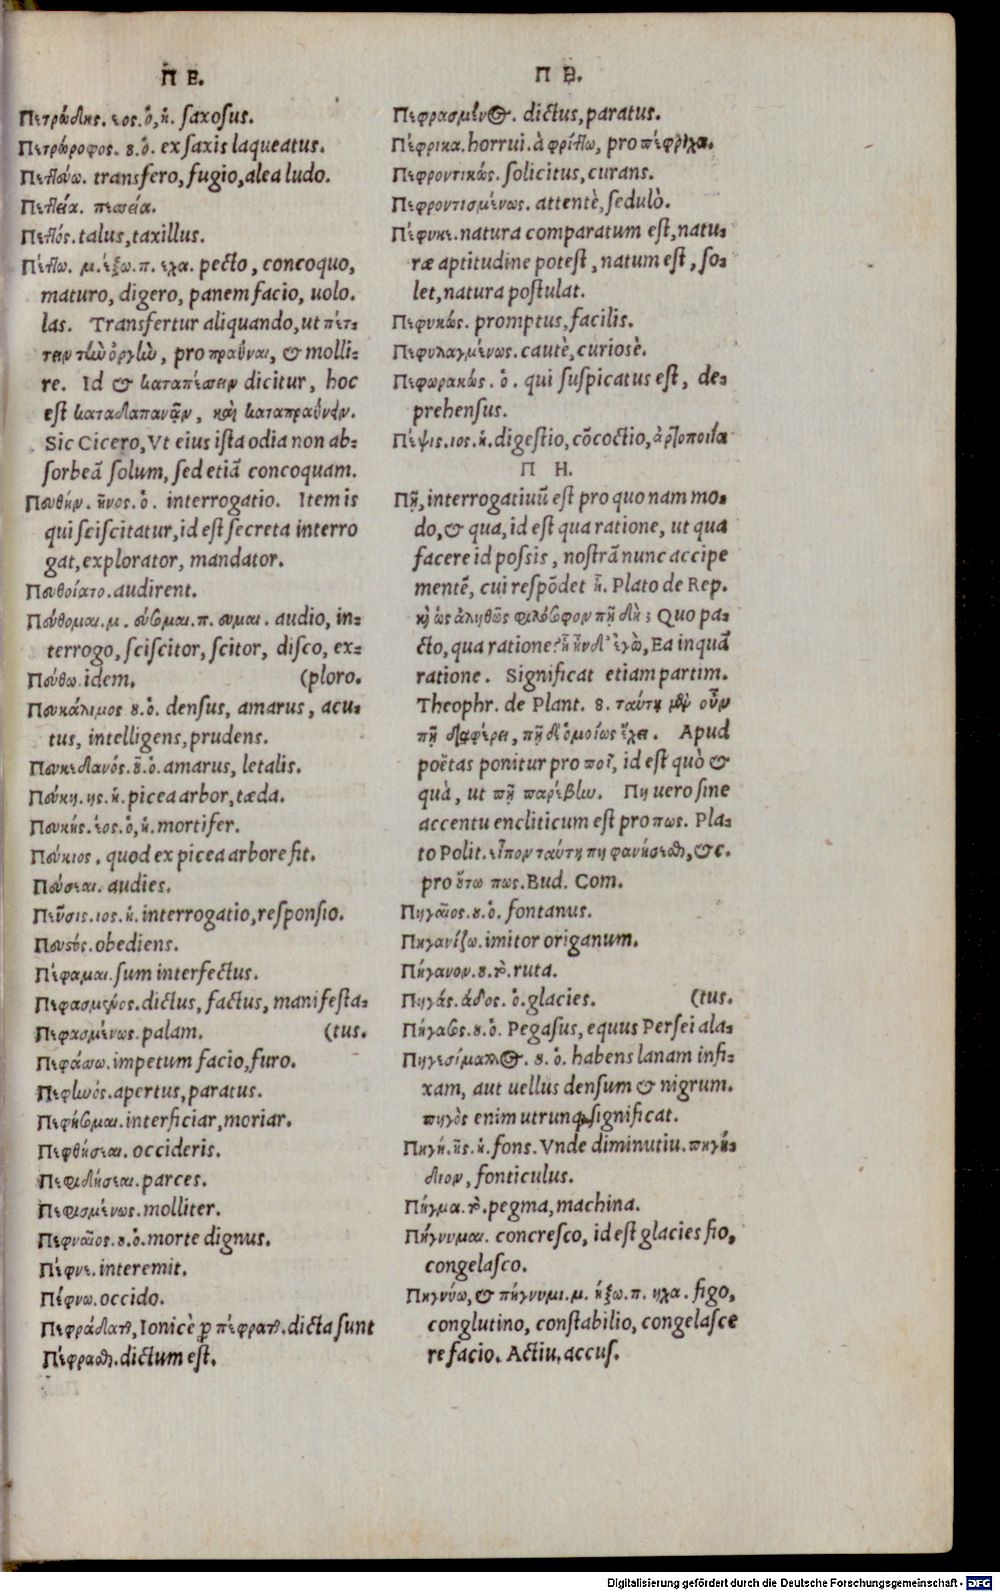 Π Ε.
Πετρώδης. εος. ὁ, ἡ. saxosus.
Πετρώροφος. ου. ὁ. ex saxis laqueatus.
Πετλεύω. transfero, fugio, alea ludo.
Πετλεία. πεσεία.
Πετλός. talus, taxillus.
Πέτλω. μ. έξω. π. εχα. pecto, concoquo,
maturo, digero, panem facio, uolo.
las. Transfertur aliquando, ut πέτ-
τειν τὴν ὀργὴν, pro πραΰναι, & molli-
re. Id & καταπέσσειν dicitur, hoc
est καταδαπανᾷν, καὶ καταπραΰνειν.
Sic Cicero, Vt eius ista odia non ab-
sorbeã solum, sed etiã concoquam.
Πευθήν. ῆνος. ὁ. interrogatio. Item is
qui sciscitatur, id est secreta interro
gat, explorator, mandator.
Πευθοίατο. audirent.
Πεύθομαι. μ. εύσομαι. π. ευμαι. audio, in-
terrogo, sciscitor, scitor, disco, ex-
Πεύθω. idem. (ploro.
Πευκάλιμος ου. ὁ. densus, amarus, acu-
tus, intelligens, prudens.
Πευκεδανός. οῦ. ὁ. amarus, letalis.
Πεύκη. ης. ἡ. picea arbor, tæda.
Πευκής. έος. ὁ, ἡ. mortifer.
Πεύκιος. quod ex picea arbore fit.
Πεύσεαι. audies.
Πεῦσις. ιος. ἡ. interrogatio, responsio.
Πευστός. obediens.
Πέφαμαι. sum interfectus.
Πεφασμένος. dictus, factus, manifesta-
Πεφασμένως. palam. (tus.
Πεφάσσω. impetum facio, furo.
Πεφηνός. apertus, paratus.
Πεφήσομαι. interficiar, moriar.
Πεφθήσεαι. occideris.
Πεφιδήσεαι. parces.
Πεφισμένως. molliter.
Πεφναῖος. ου. ὁ. morte dignus.
Πέφνε. interemit.
Πέφνω. occido.
Πεφράδαται, Ionicè ꝓ πέφραται. dicta sunt
Πέφρασθαι. dictum est.
Π Ε.
Πεφρασμένος. dictus, paratus.
Πέφρικα. horrui. à φρίτλω, pro πέφριχα.
Πεφροντικώς. solicitus, curans.
Πεφροντισμένως. attentè, sedulò.
Πέφυκε. natura comparatum est, natu-
ræ aptitudine potest, natum est, so-
let, natura postulat.
Πεφυκώς. promptus, facilis.
Πεφυλαγμένως. cautè, curiosè.
Πεφωρακώς. ὁ. qui suspicatus est, de-
prehensus.
Πέψις. ιος. ἡ. digestio, cõcoctio, ἀρτοποιΐα
Π Η.
Πῆ, interrogatiuũ est pro quo nam mo-
do, & qua, id est qua ratione, ut qua
facere id possis, nostrã nunc accipe
mentẽ, cui respõdet ᾗ. Plato de Rep.
καὶ ὡς ἀληθῶς φιλόσοφον πῆ δὴ; Quo pa-
cto, qua ratione? ᾗ ἦν δ' ἐγὼ, Ea inquã
ratione. Significat etiam partim.
Theophr. de Plant. 8. ταύτῃ μὲν οὖν
πῆ διαφέρει, πῆ δ' ὁμοίως ἔχει. Apud
poëtas ponitur pro ποῖ, id est quò &
quà, ut πῆ παρέβλω. Πη uero sine
accentu encliticum est pro πως. Pla-
to Polit. εἶπον ταύτῃ πη φανήσεσθαι, &c.
pro οὕτω πως. Bud. Com.
Πηγαῖος. ου. ὁ. fontanus.
Πηγανίζω. imitor origanum.
Πήγανον. ου. τὸ. ruta.
Πηγάς. άδος. ὁ. glacies. (tus.
Πήγασος. ου. ὁ. Pegasus, equus Persei ala-
Πηγεσίμαλλος. ου. ὁ. habens lanam infi-
xam, aut uellus densum & nigrum.
πηγὸς enim utrunq; significat.
Πηγή. ῆς. ἡ. fons. Vnde diminutiu. πηγή-
διον, fonticulus.
Πῆγμα. τὸ. pegma, machina.
Πήγνυμαι. concresco, id est glacies fio,
congelasco.
Πηγνύω, & πήγνυμι. μ. ήξω. π. ηχα. figo,
conglutino, constabilio, congelasce
re facio. Actiu. accus.
Digitalisierung gefördert durch die Deutsche Forschungsgemeinschaft - DFG